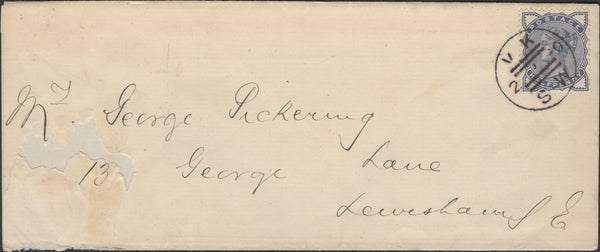 POSTAGE
Mr George Pickering
13 George Lane
Lewisham S E